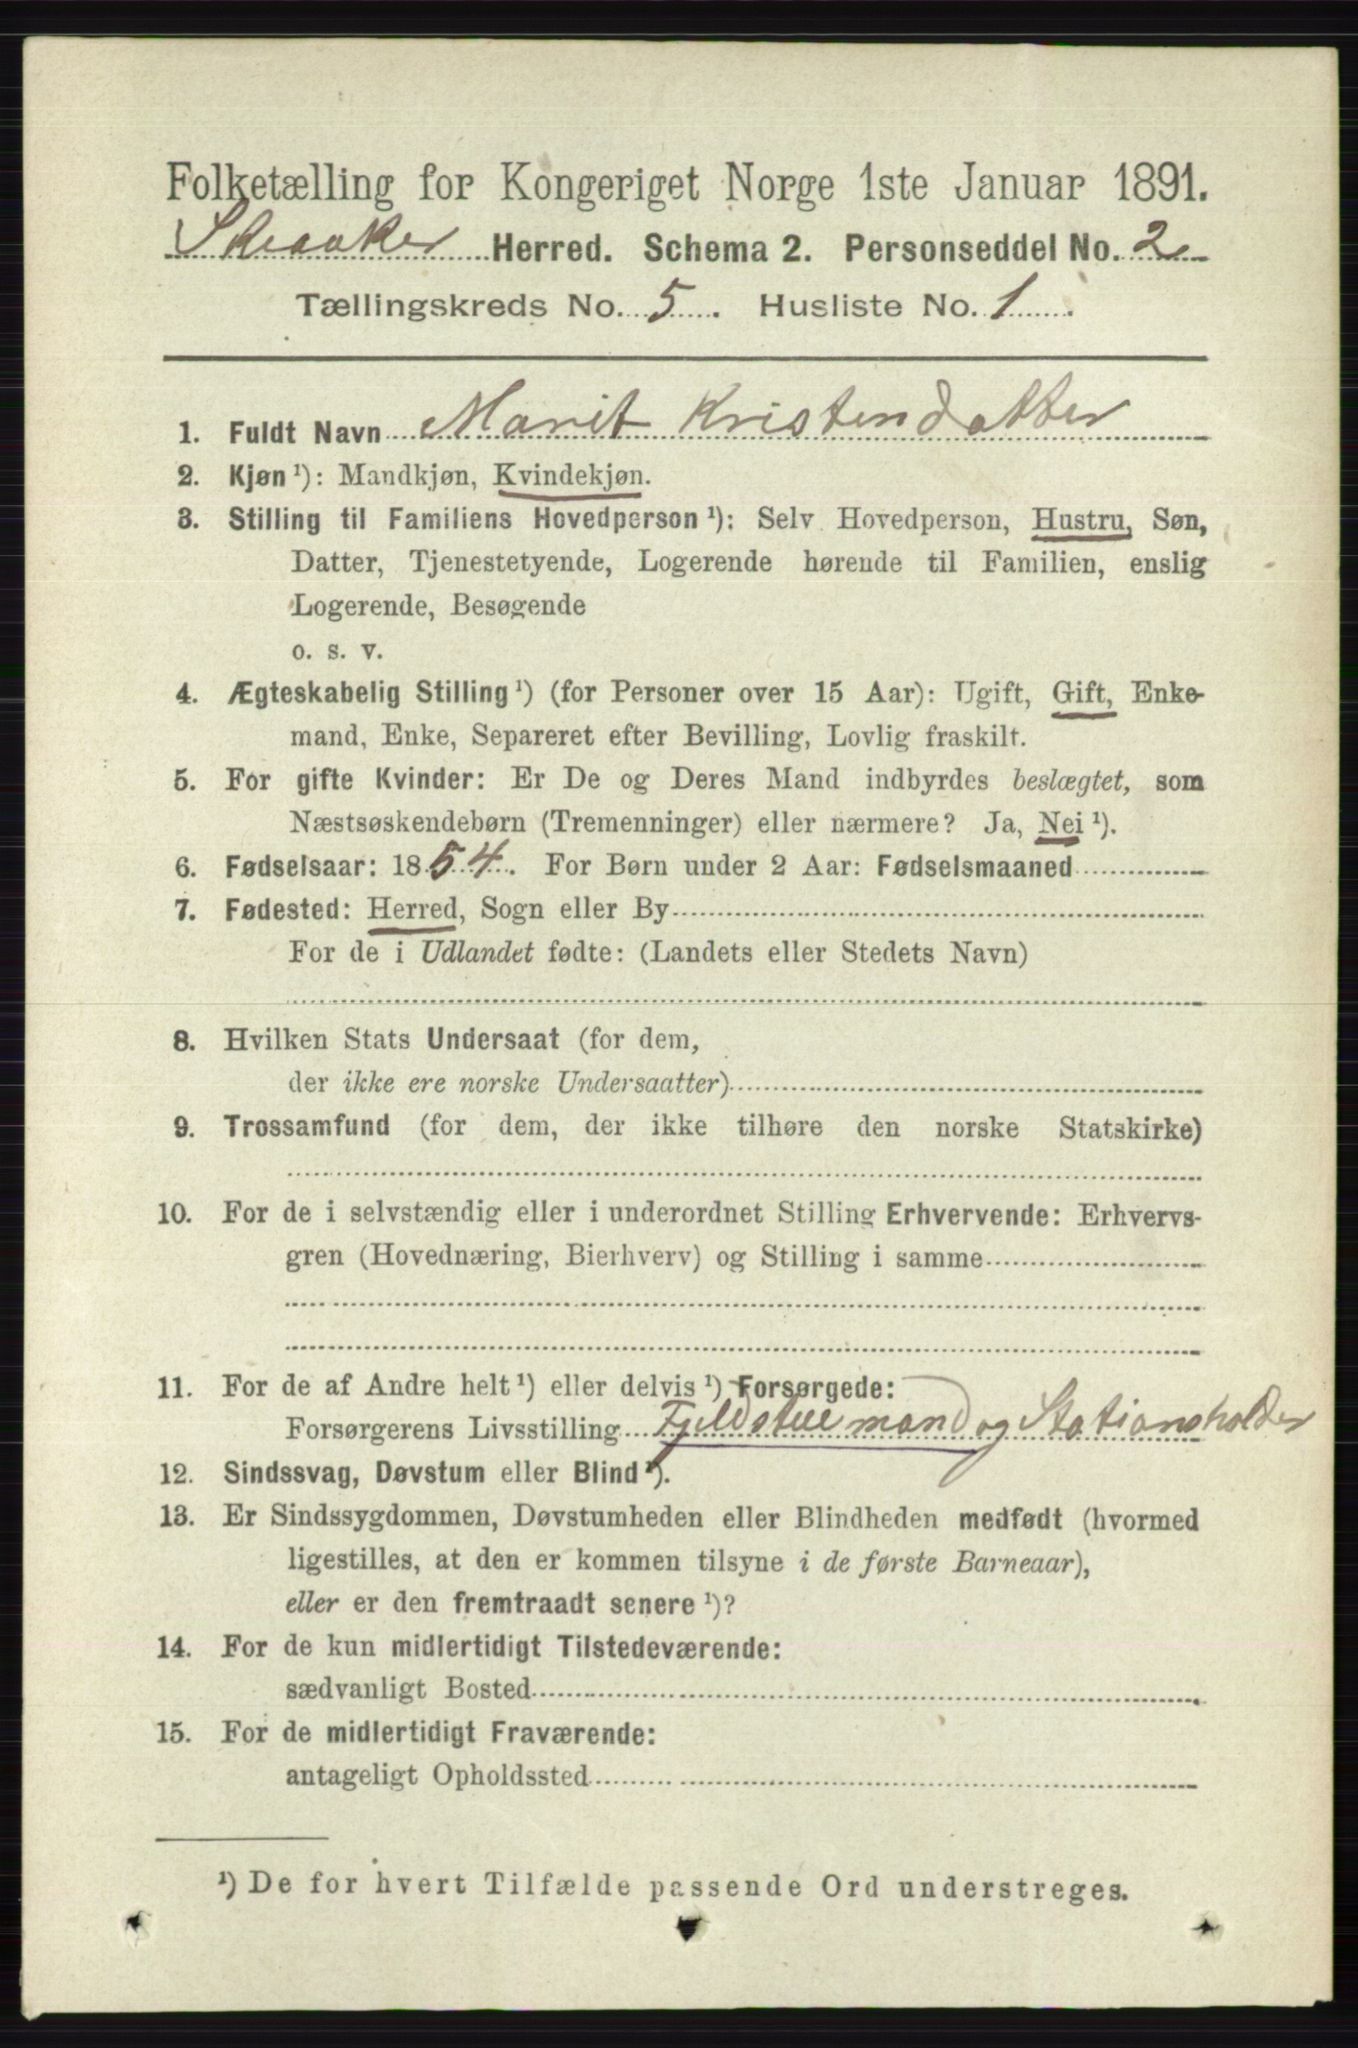 Folketælling for Kongeriget Norge 1ste Januar 1891.
Skiaaker Herred. Schema 2. Personseddel No. 2
Tællingskreds No. 5. Husliste No. 1.
1. Fuldt Navn Marit Kristendatter
2. Kjøn ¹): Mandkjøn, Kvindekjøn.
3. Stilling til Familiens Hovedperson ¹): Selv Hovedperson, Hustru, Søn,
Datter, Tjenestetyende, Logerende hørende til Familien, enslig
Logerende, Besøgende
o. s. v.
4. Ægteskabelig Stilling ¹) (for Personer over 15 Aar): Ugift, Gift, Enke-
mand, Enke, Separeret efter Bevilling, Lovlig fraskilt.
5. For gifte Kvinder: Er De og Deres Mand indbyrdes beslægtet, som
Næstsøskendebørn (Tremenninger) eller nærmere? Ja, Nei ¹).
6. Fødselsaar: 1854. For Børn under 2 Aar: Fødselsmaaned
7. Fødested: Herred, Sogn eller By
For de i Udlandet fødte: (Landets eller Stedets Navn)
8. Hvilken Stats Undersaat (for dem,
der ikke ere norske Undersaatter)
9. Trossamfund (for dem, der ikke tilhøre den norske Statskirke)
10. For de i selvstændig eller i underordnet Stilling Erhvervende: Erhvervs-
gren (Hovednæring, Bierhverv) og Stilling i samme
11. For de af Andre helt ¹) eller delvis ¹) Forsørgede:
Forsørgerens Livsstilling Fjeldstuemand og Stationsholder
12. Sindssvag, Døvstum eller Blind ¹).
13. Er Sindssygdommen, Døvstumheden eller Blindheden medfødt (hvormed
ligestilles, at den er kommen tilsyne i de første Barneaar),
eller er den fremtraadt senere ¹)?
14. For de kun midlertidigt Tilstedeværende:
sædvanligt Bosted
15. For de midlertidigt Fraværende:
antageligt Opholdssted
¹) De for hvert Tilfælde passende Ord understreges.